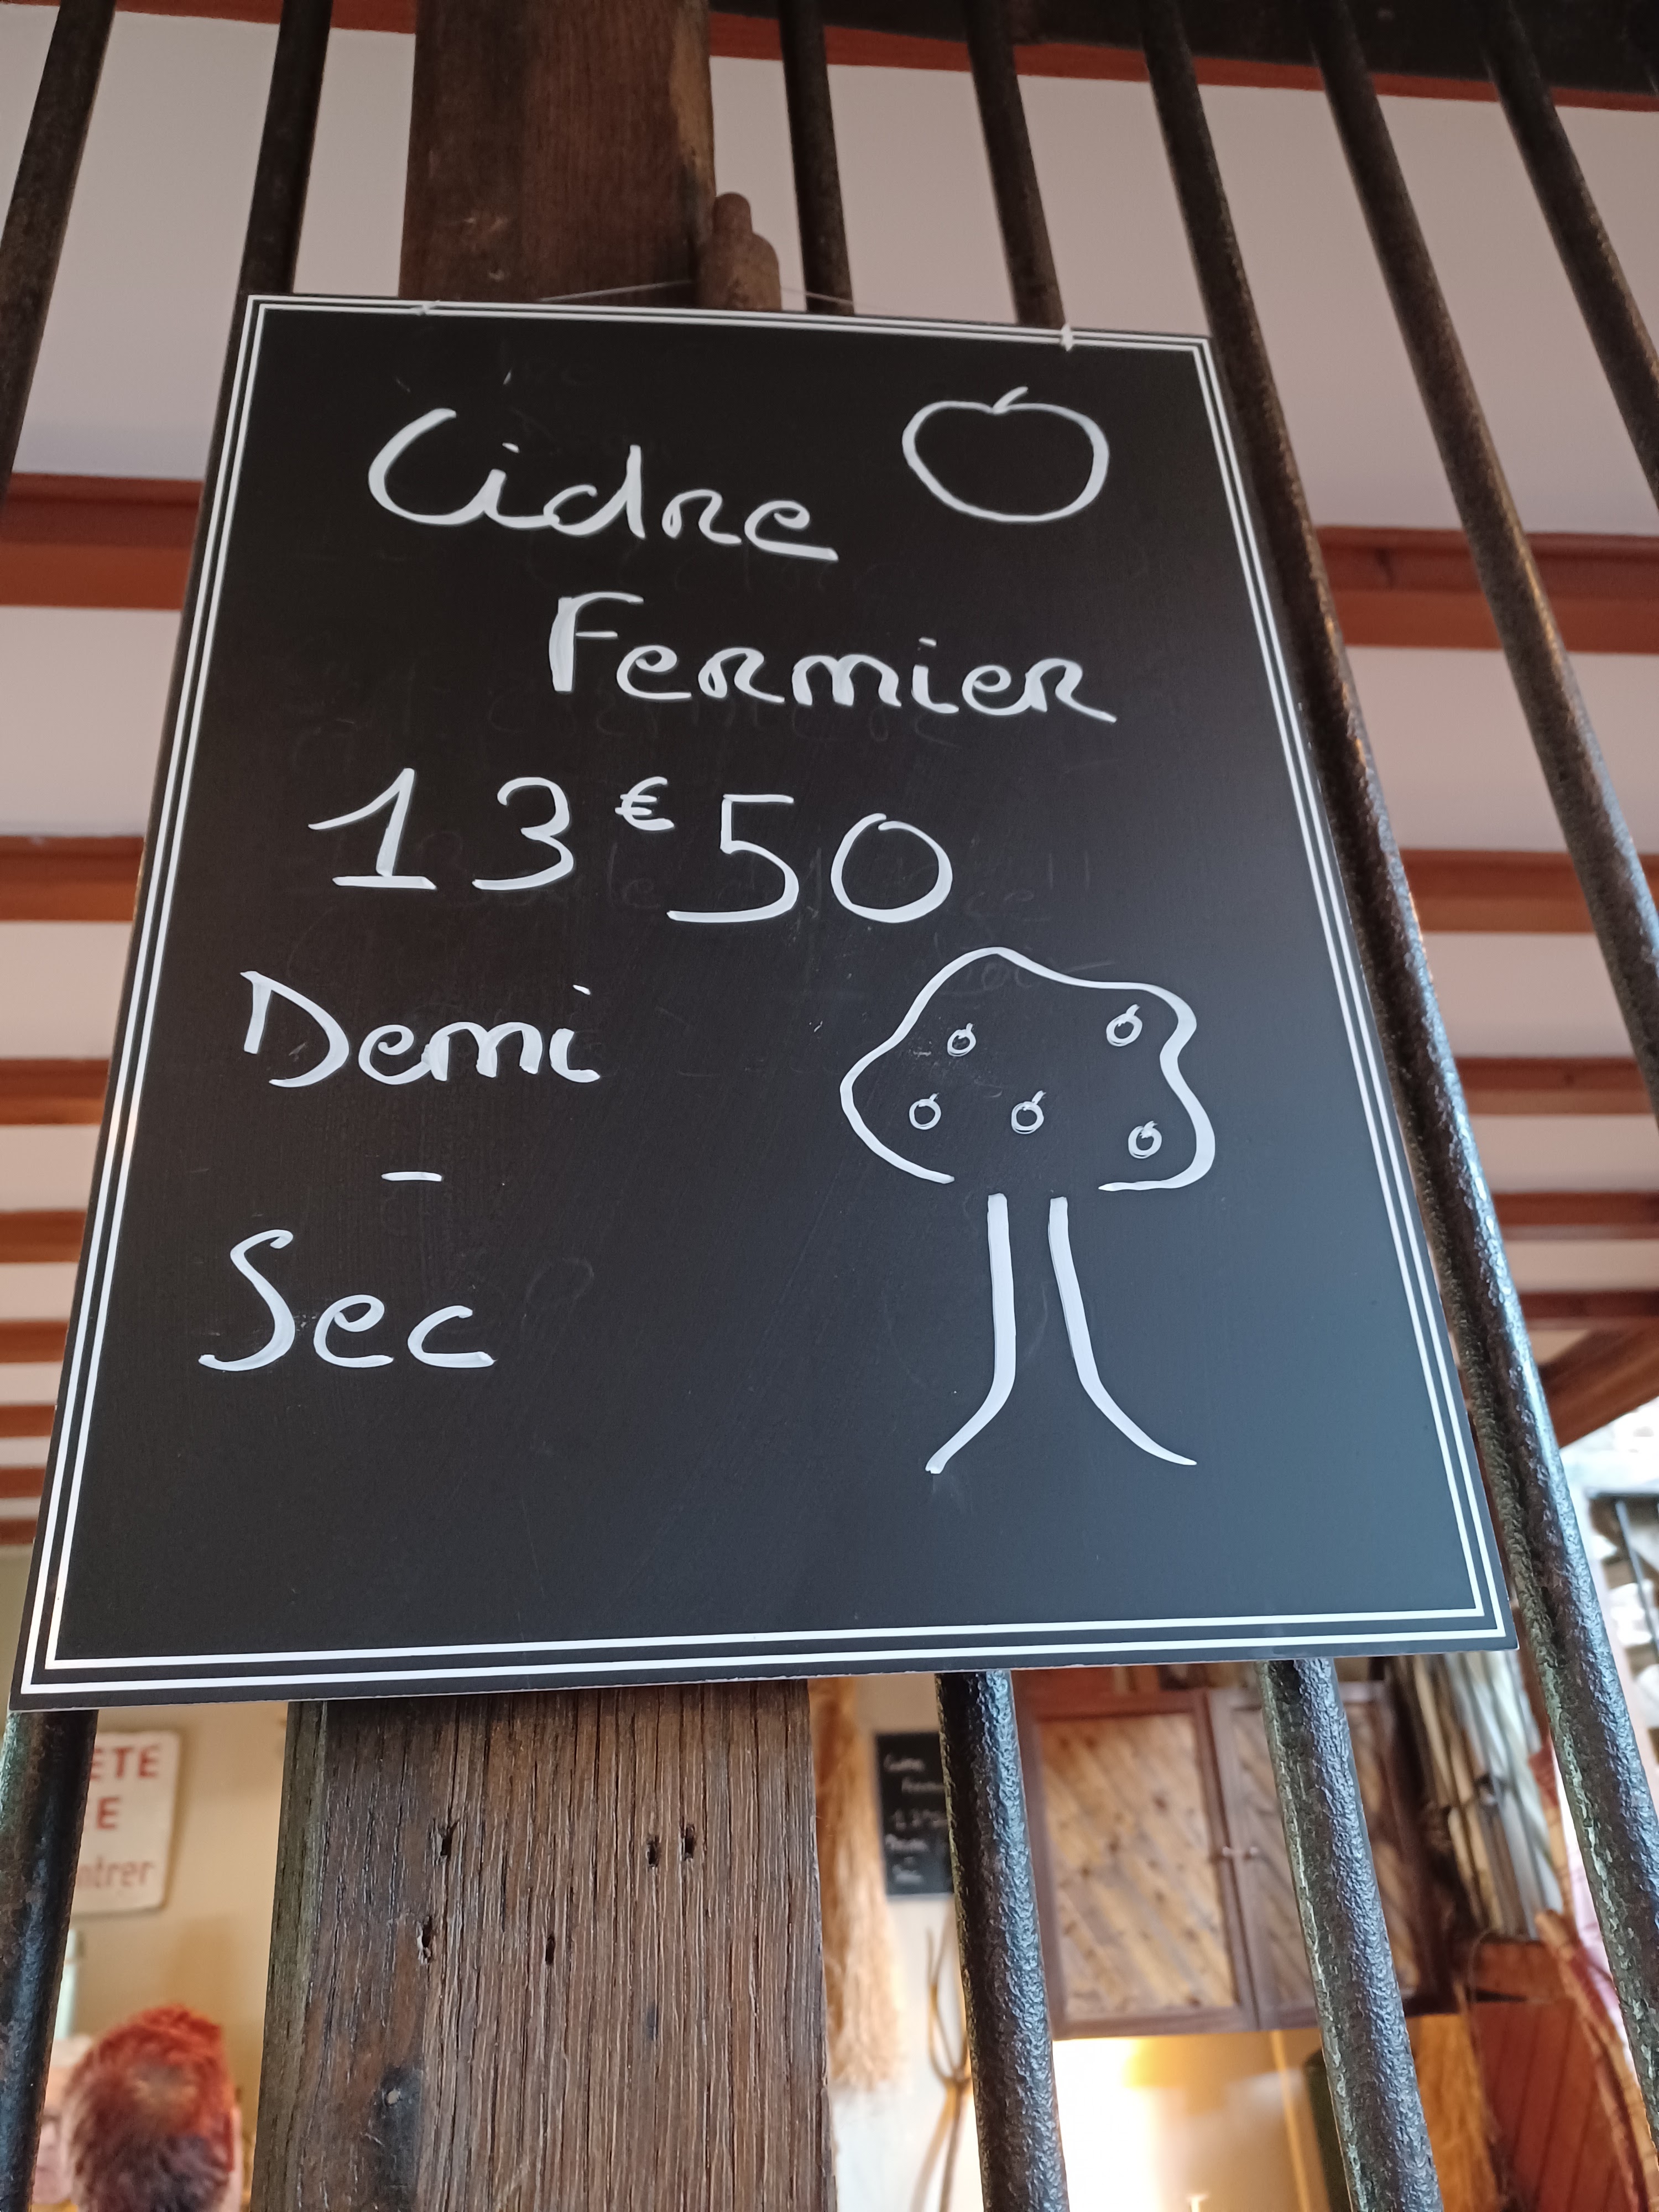 Cidre
Fermier
13€50
Demi
-
Sec
ETE
E
ntrer